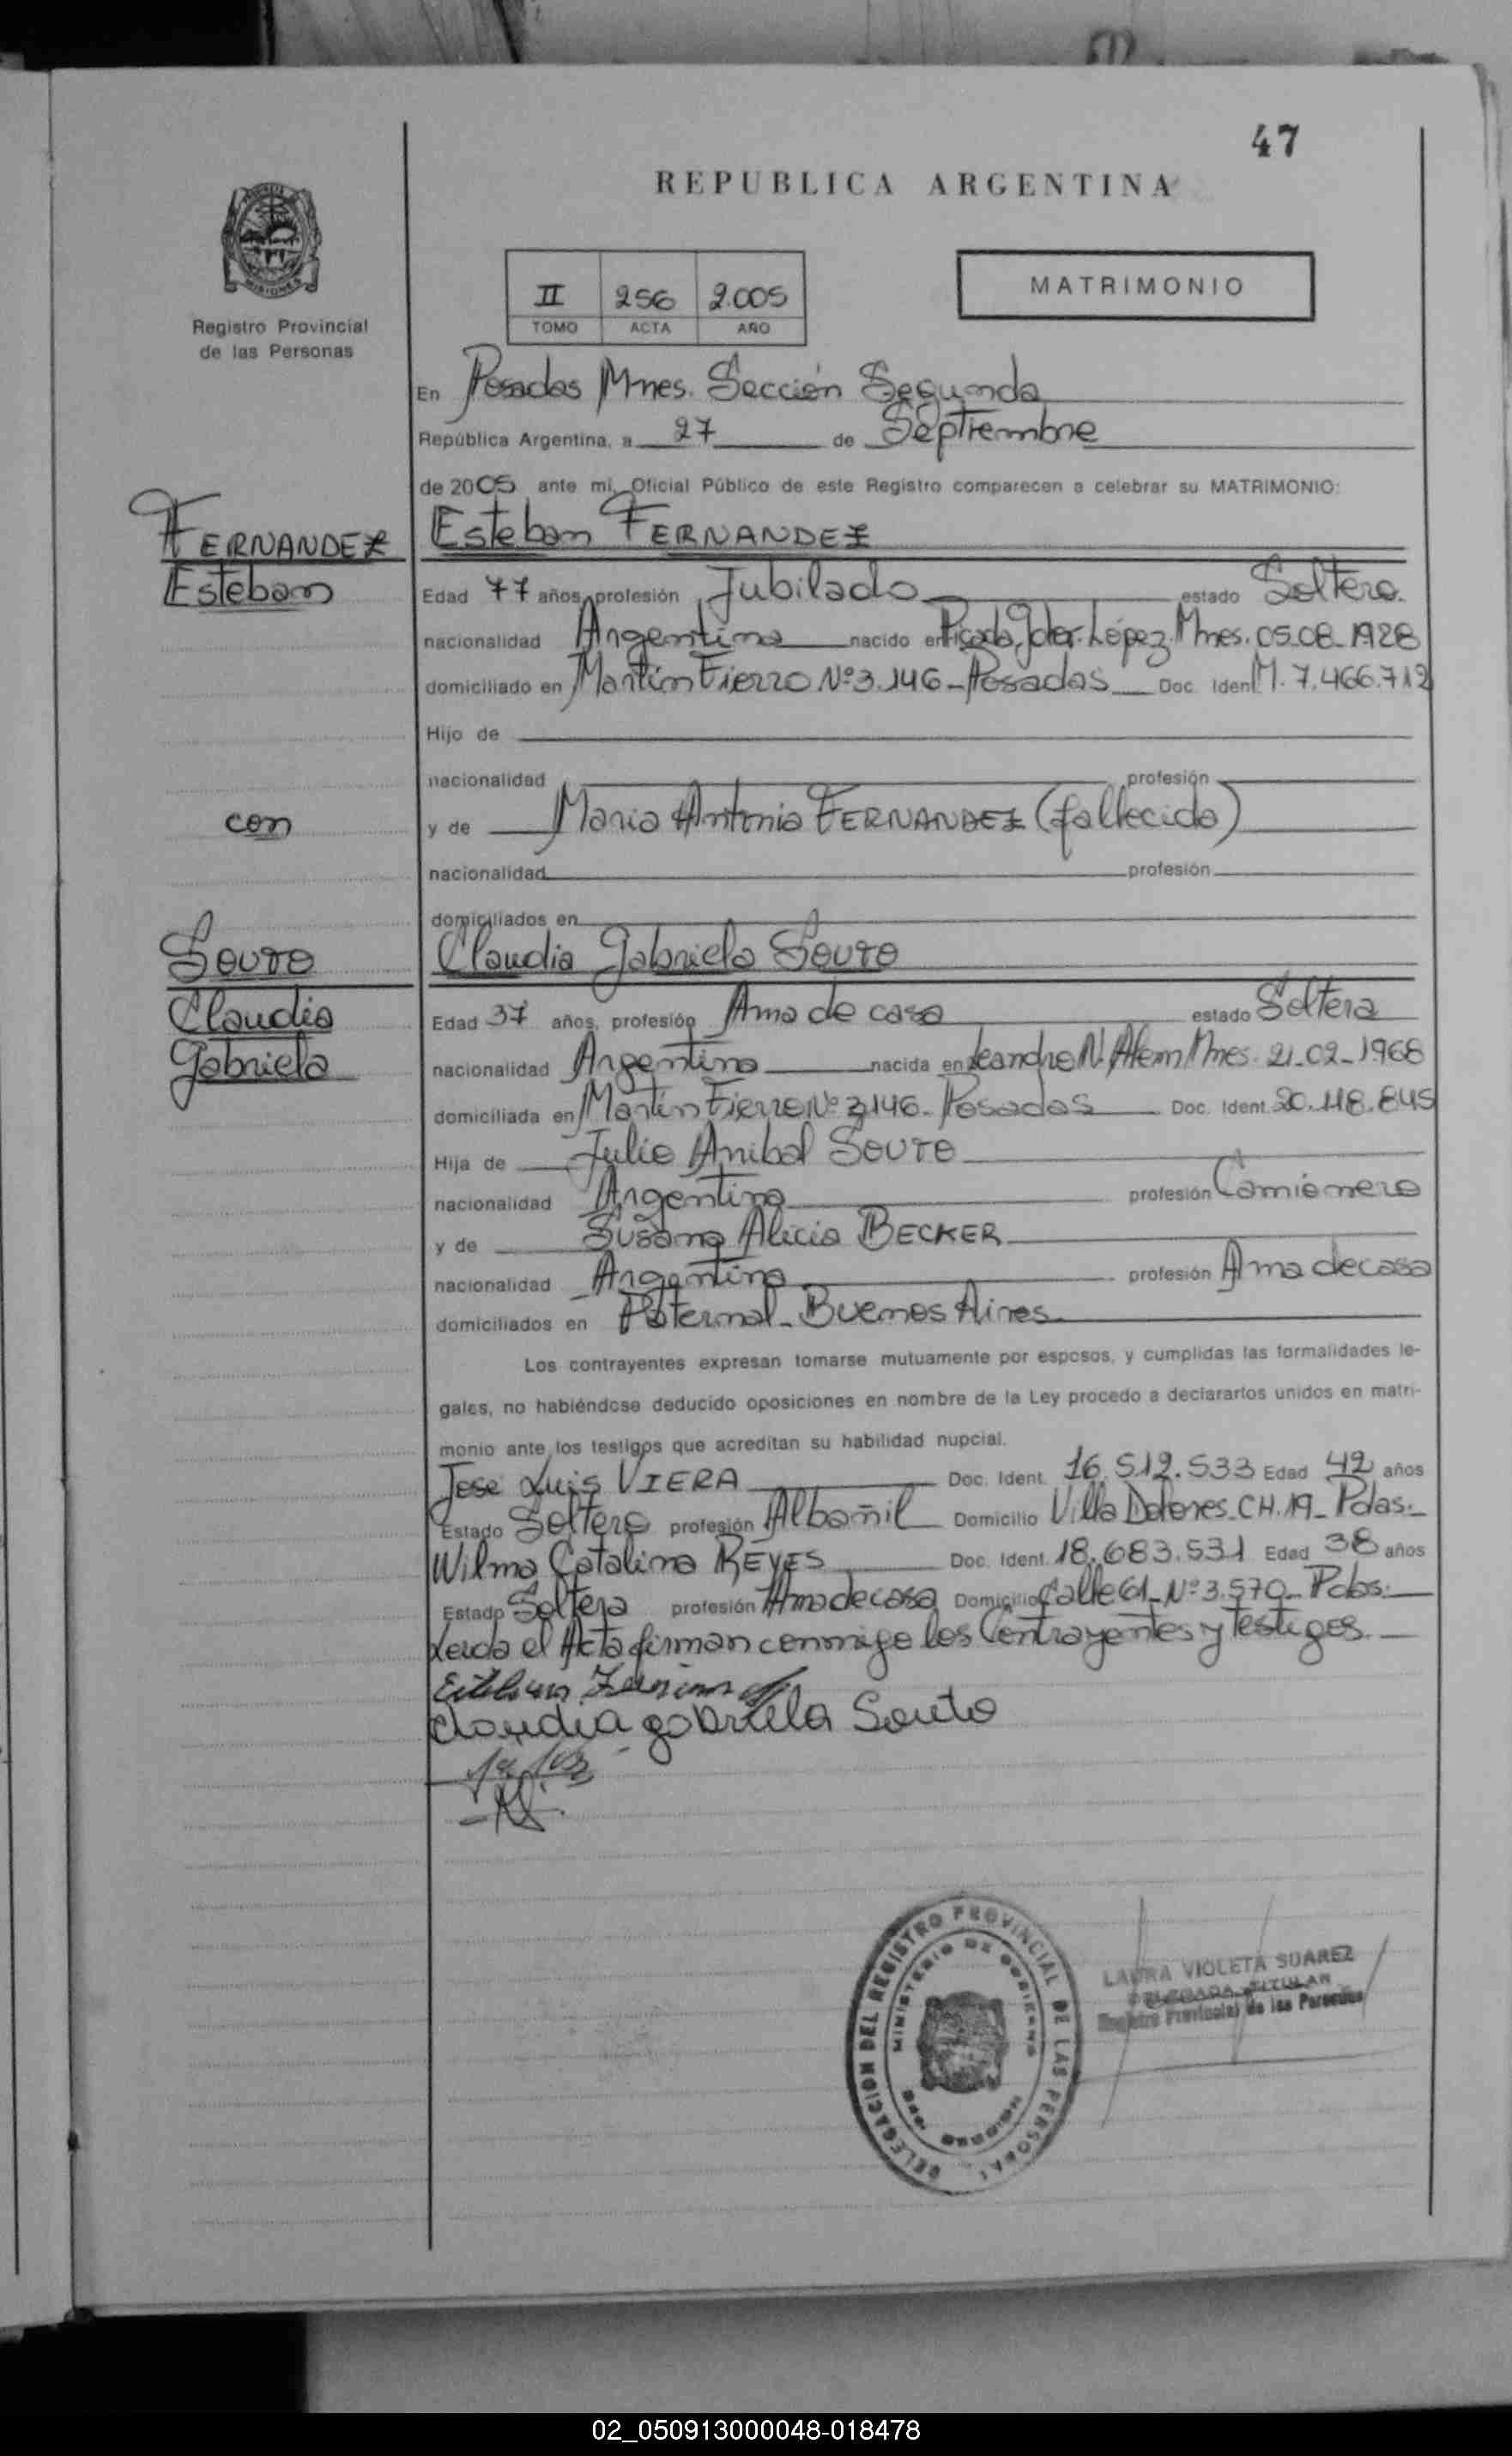 47
REPUBLICA ARGENTINA
MISIONES
Registro Provincial
de las Personas
II 256 2.005
TOMO ACTA AÑO
MATRIMONIO
En Posadas Mnes. Sección Segunda
República Argentina, a 27 de Septiembre
de 2005 ante mi, Oficial Público de este Registro comparecen a celebrar su MATRIMONIO:
FERNANDEZ
Esteban
Esteban FERNANDEZ
Edad 77 años, profesión Jubilado estado Soltero.
nacionalidad Argentina nacido en Picada Gdor. López Mnes. 05-08-1928
domiciliado en Martín Fierro Nº 3.146 - Posadas Doc. Iden M. 7.466.712
Hijo de
nacionalidad profesión
con
y de Maria Antonia FERNANDEZ (fallecida)
nacionalidad profesión
domiciliados en
SOUTO
Claudia
Gabriela
Claudia Gabriela SOUTO
Edad 37 años, profesión Ama de casa estado Soltera
nacionalidad Argentina nacida en Leandro N. Alem Mnes. 21-02-1968
domiciliada en Martín Fierro Nº 3.146 - Posadas Doc. Ident. 20.118.845
Hija de Julio Anibal SOUTO
nacionalidad Argentina profesión Camionero
y de Susana Alicia BECKER
nacionalidad Argentina profesión Ama de casa
domiciliados en Paternal - Buenos Aires
Los contrayentes expresan tomarse mutuamente por esposos, y cumplidas las formalidades le-
gales, no habiéndose deducido oposiciones en nombre de la Ley procedo a declararlos unidos en matri-
monio ante los testigos que acreditan su habilidad nupcial.
Jose Luis VIERA Doc. Ident. 16.512.533 Edad 42 años
Estado Soltero profesión Albañil Domicilio Villa Dolores - CH.19 - Pdas.
Wilma Catalina REYES Doc. Ident. 18.683.531 Edad 38 años
Estado Soltera profesión Ama de casa Domicilio Calle 61 - Nº 3.570 - Pdas.
Leida el Acta firman conmigo los Contrayentes y Testigos.
Esteban Fernandez
Claudia gabriela Souto
DELEGACION DEL REGISTRO PROVINCIAL DE LAS PERSONAS
MINISTERIO DE GOBIERNO
MISIONES
LAURA VIOLETA SUAREZ
DELEGADA TITULAR
Registro Provincial de las Personas
02_050913000048-018478